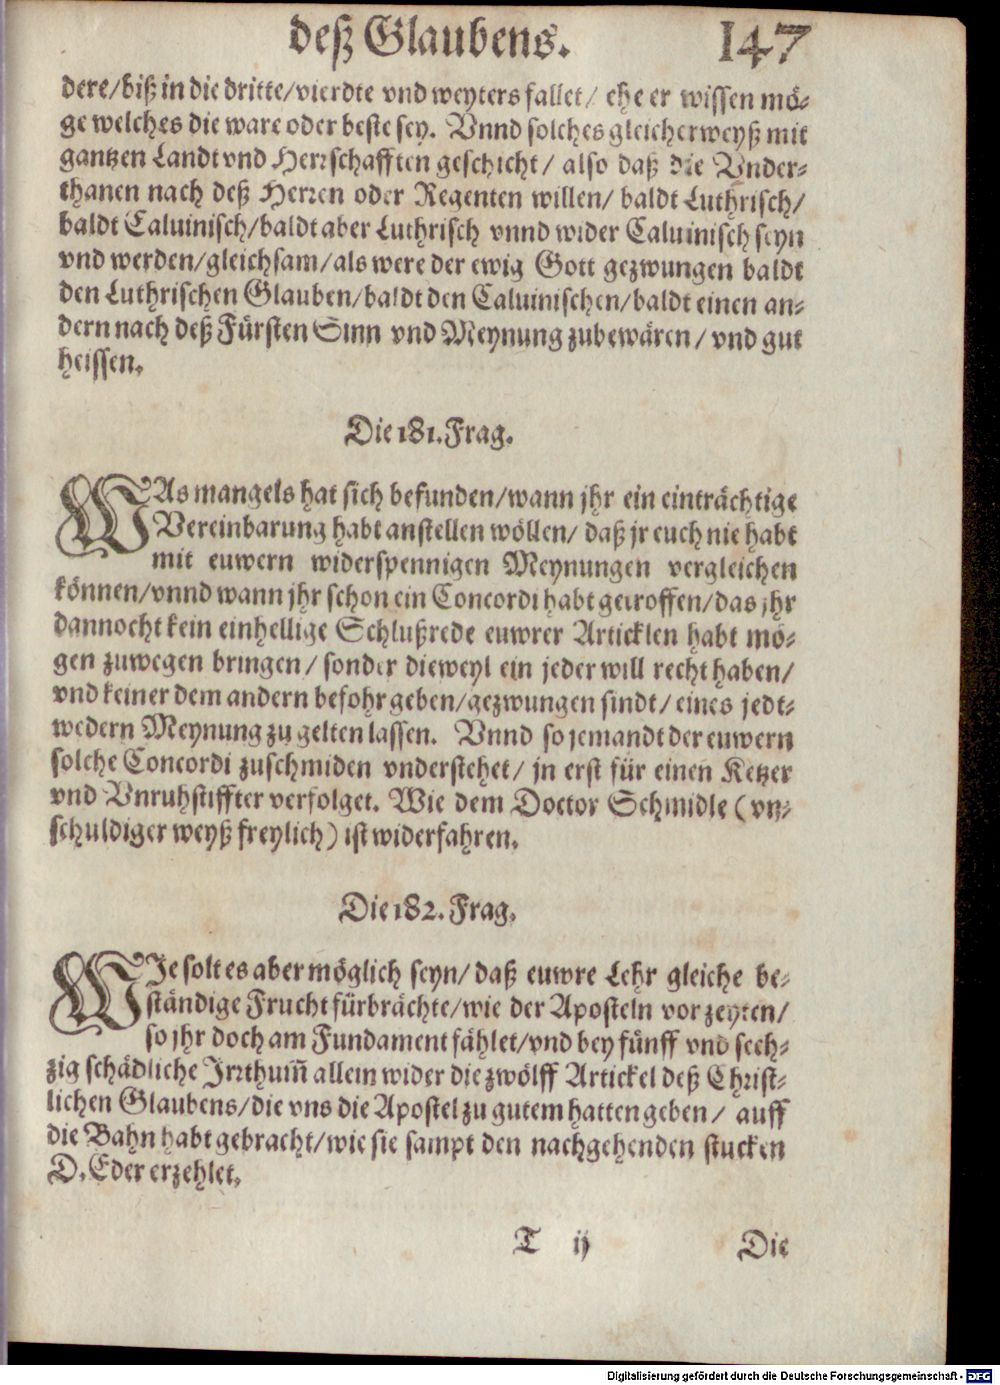 deß Glaubens. 147
dere/biß in die dritte/vierdte vnd weyters fallet/ ehe er wissen mö-
ge welches die ware oder beste sey. Vnnd solches gleicher weyß mit
gantzen Landt vnd Herrschafften geschicht/ also daß die Vnder-
thanen nach deß Herren oder Regenten willen/ baldt Luthrisch/
baldt Caluinisch/baldt aber Luthrisch vnnd wider Caluinisch seyn
vnd werden/gleichsam/als were der ewig Gott gezwungen baldt
den Luthrischen Glauben/baldt den Caluinischen/baldt einen an-
dern nach deß Fürsten Sinn vnd Meynung zubewären/ vnd gut
heissen.
Die 181. Frag.
WAs mangels hat sich befunden/wann jhr ein einträchtige
Vereinbarung habt anstellen wöllen/ daß jr euch nie habt
mit euwern widerspennigen Meynungen vergleichen
können/vnnd wann jhr schon ein Concordi habt getroffen/das jhr
dannocht kein einhellige Schlußrede euwrer Articklen habt mö-
gen zuwegen bringen/ sonder dieweyl ein jeder will recht haben/
vnd keiner dem andern befohr geben/gezwungen sindt/ eines jedt-
wedern Meynung zu gelten lassen. Vnnd so jemandt der euwern
solche Concordi zuschmiden vnderstehet/ jn erst für einen Ketzer
vnd Vnruhstiffter verfolget. Wie dem Doctor Schmidle (vn-
schuldiger weyß freylich) ist widerfahren.
Die 182. Frag.
WJe solt es aber möglich seyn/ daß euwre Lehr gleiche be-
ständige Frucht fürbrächte/wie der Aposteln vor zeyten/
so jhr doch am Fundament fählet/vnd bey fünff vnd sech-
zig schädliche Jrrthum̃ allein wider die zwölff Artickel deß Christ-
lichen Glaubens/die vns die Apostel zu gutem hatten geben/ auff
die Bahn habt gebracht/wie sie sampt den nachgehenden stucken
D. Eder erzehlet.
T ij Die
Digitalisierung gefördert durch die Deutsche Forschungsgemeinschaft - DFG